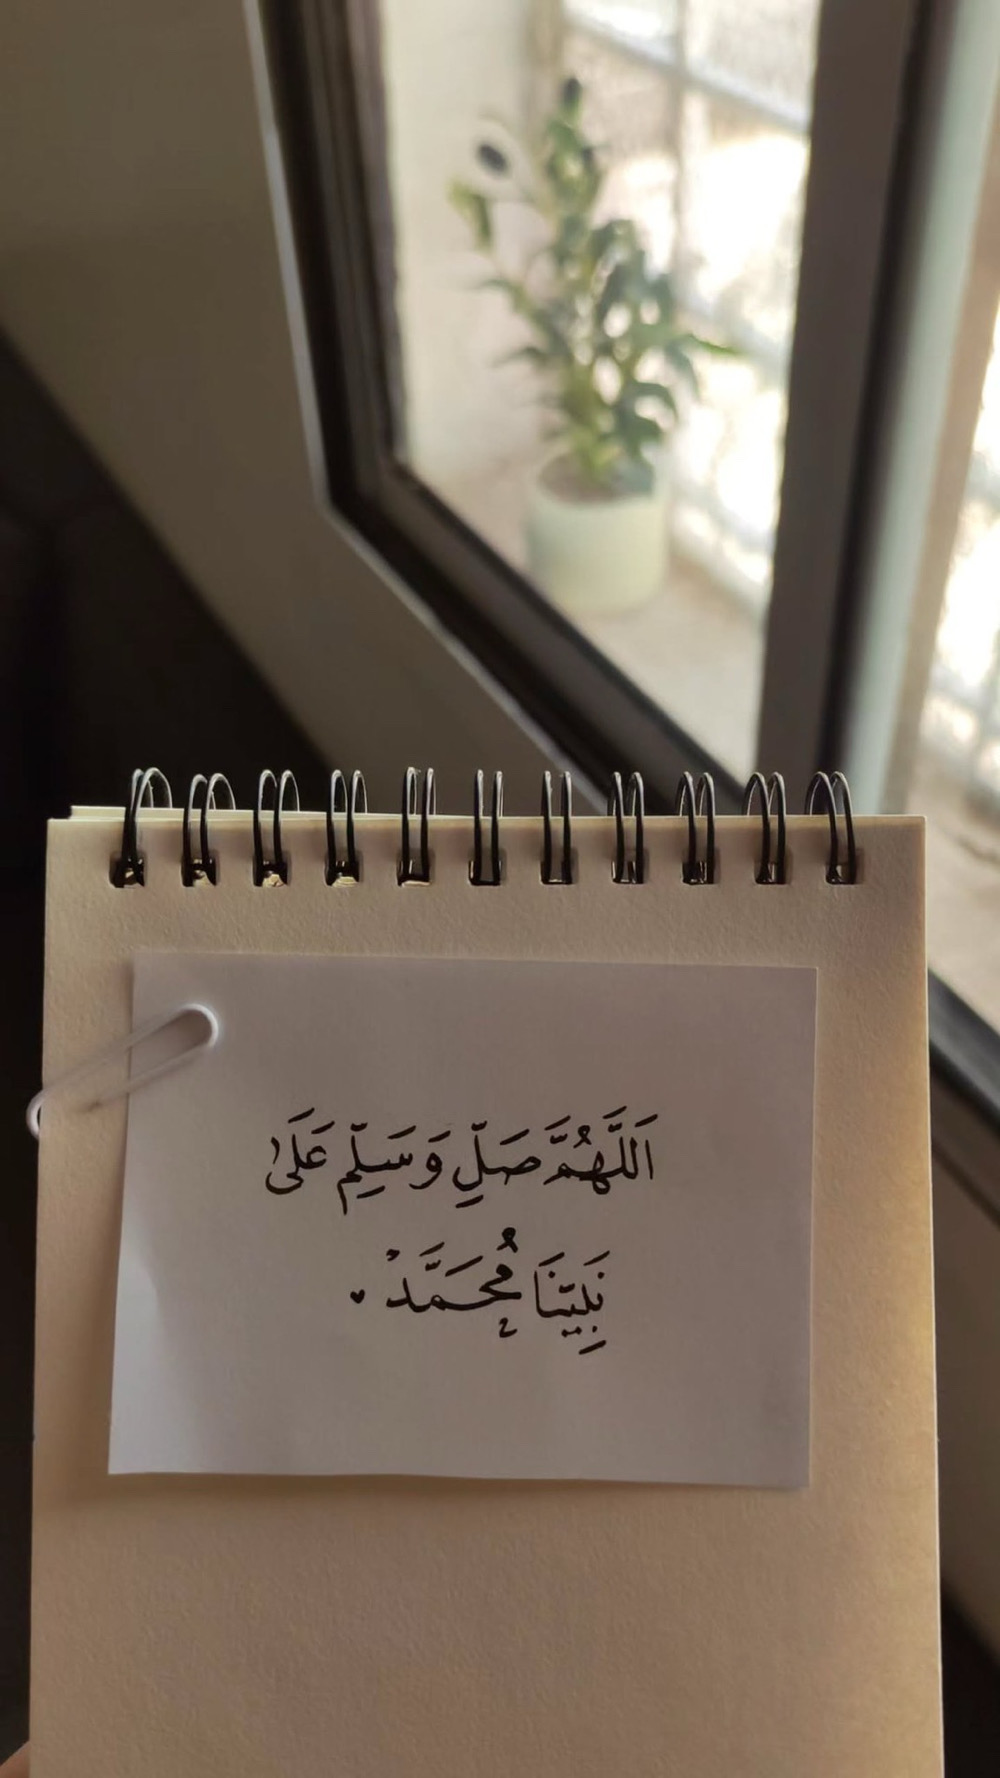 اَللَّهُمَّ صَلِّ وَسَلِّم عَلَىٰ
نَبِيِّنَا مُحَمَّدْ .